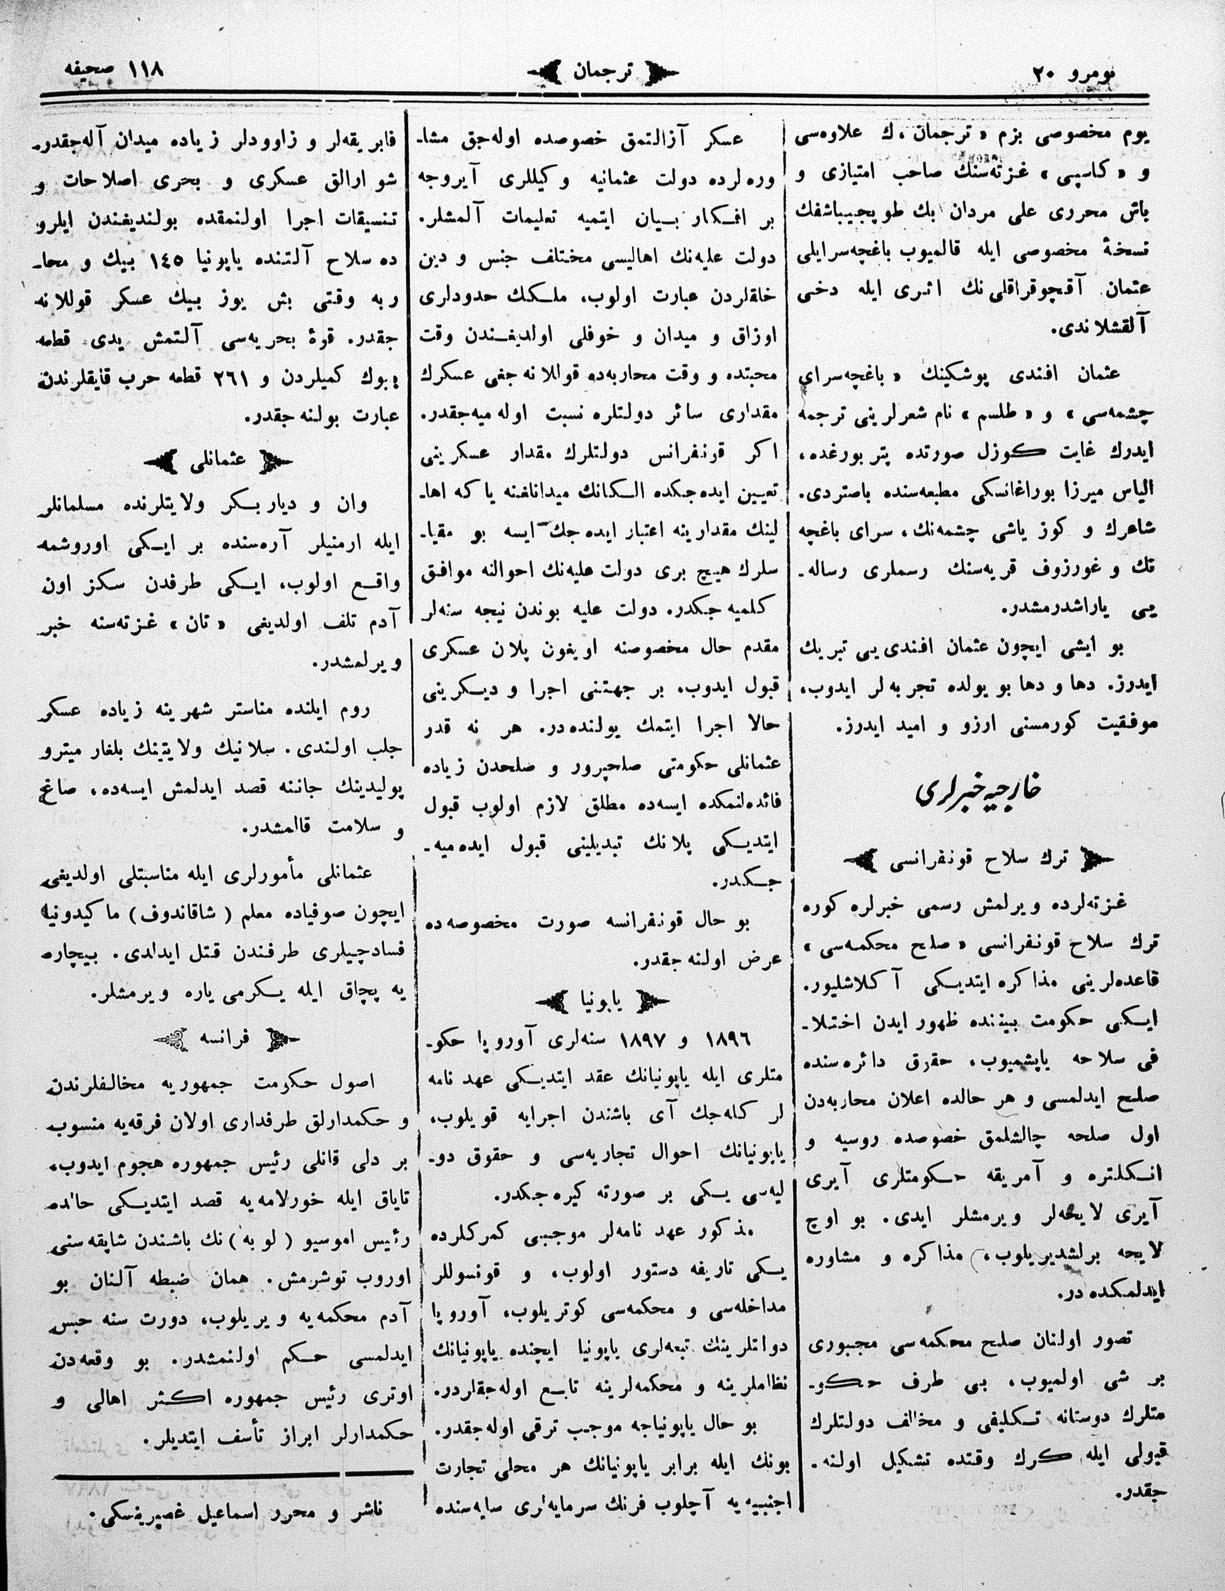 نومرو ٢٠
ترجمان
١١٨ صحيفه
يوم مخصوصى بزم « ترجمان » ك علاوه‌سى
و « كاسپى » غزته‌سنك صاحب امتيازى و
باش محررى على مردان بك طوپجيباشفك
نسخهٔ مخصوصى ايله قالميوب باغچه‌سرايلى
عثمان آقچوقراقلى نك اثرى ايله دخى
آلقشلاندى.
عثمان افندى پوشكينك « باغچه‌سراى
چشمه‌سى » و « طلسم » نام شعرلرينى ترجمه
ايدرك غايت كوزل صورتده پتربورغده،
الياس ميرزا بوراغانسكى مطبعه‌سنده باصتردى.
شاعرك و كوز ياشى چشمه‌نك، سراى باغچه
نك و غورزوف قريه‌سنك رسملرى رساله‌ـ
يى ياراشدرمشدر.
بو ايشى ايچون عثمان افندى‌يى تبريك
ايدرز. دها و دها بو يولده تجربه‌لر ايدوب،
موفقيت كورمسنى ارزو و اميد ايدرز.
خارجيه خبرلرى
ترك سلاح قونفرانسى
غزته‌لرده ويرلمش رسمى خبرلره كوره
ترك سلاح قونفرانسى « صلح محكمه‌سى »
قاعده‌لرينى مذاكره ايتديكى آكلاشليور.
ايكى حكومت بيننده ظهور ايدن اختلاـ
فى سلاحه ياپشميوب، حقوق دائره‌سنده
صلح ايدلمسى و هر حالده اعلان محاربه‌دن
اول صلحه چالشلمق خصوصده روسيه و
انكلتره و آمريقه حكومتلرى آيرى
آيرى لايحه‌لر ويرمشلر ايدى. بو اوچ
لايحه برلشديريلوب، مذاكره و مشاوره
ايدلمكده‌در.
تصور اولنان صلح محكمه‌سى مجبورى
بر شى اولميوب، بى طرف حكوـ
متلرك دوستانه تكليفى و مخالف دولتلرك
قبولى ايله كرك وقتده تشكيل اولنه‌ـ
جقدر.
عسكر آزالتمق خصوصده اوله‌جق مشاـ
وره‌لرده دولت عثمانيه وكيللرى آيروجه
بر افكار بيان ايتميه تعليمات آلمشلر.
دولت عليه‌نك اهاليسى مختلف جنس و دين
خلقلردن عبارت اولوب، ملكك حدودلرى
اوزاق و ميدان و خوفلى اولديغندن وقت
محبتده و وقت محاربه‌ده قوللانه‌جغى عسكرك
مقدارى سائر دولتلره نسبت اوله‌ميه‌جقدر.
اكر قونفرانس دولتلرك مقدار عسكرينى
تعيين ايده‌جكده الكانك ميدانلغنه ياكه اهاـ
لينك مقدارينه اعتبار ايده‌جك ايسه بو مقياـ
سلرك هيچ برى دولت عليه‌نك احوالنه موافق
كلميه‌جكدر. دولت عليه بوندن نيجه سنه‌لر
مقدم حال مخصوصنه اويغون پلان عسكرى
قبول ايدوب، بر جهتنى اجرا و ديكرينى
حالا اجرا ايتمك يولنده‌در. هر نه قدر
عثمانلى حكومتى صلحپرور و صلحدن زياده
فائده‌لنمكده ايسه‌ده مطلق لازم اولوب قبول
ايتديكى پلانك تبديلينى قبول ايده‌ميه‌ـ
جكدر.
بو حال قونفرانسه صورت مخصوصه‌ده
عرض اولنه‌جقدر.
ياپونيا
١٨٩٦ و ١٨٩٧ سنه‌لرى آوروپا حكوـ
متلرى ايله ياپونيانك عقد ايتديكى عهدنامه
لر كله‌جك آى باشندن اجرايه قويلوب،
ياپونيانك احوال تجاريه‌سى و حقوق دوـ
ليه‌سى يكى بر صورته كيره‌جكدر.
مذكور عهدنامه‌لر موجبى كمركلرده
يكى تاريفه دستور اولوب، و قونسوللر
مداخله‌سى و محكمه‌سى كوتريلوب، آوروپا
دولتلرينك تبعه‌لرى ياپونيا ايچنده ياپونيانك
نظاملرينه و محكمه‌لرينه تابع اوله‌جقلردر.
بو حال ياپونياجه موجب ترقى اوله‌جقدر.
بونك ايله برابر ياپونيانك هر محلى تجارت
اجنبيه‌يه آچلوب فرنك سرمايه‌لرى سايه‌سنده
فابريقه‌لر و زاوودلر زياده ميدان آله‌جقدر.
شو ارالق عسكرى و بحرى اصلاحات و
تنسيقات اجرا اولنمقده بولنديغندن ايلروـ
ده سلاح آلتنده ياپونيا ١٤٥ بيك و محاـ
ربه وقتى بش يوز بيك عسكر قوللانه
جقدر. قوهٔ بحريه‌سى آلتمش يدى قطعه
بيوك كميلردن و ٢٦١ قطعه حرب قايقلرندن
عبارت بولنه‌جقدر.
عثمانلى
وان و دياربكر ولايتلرنده مسلمانلر
ايله ارمنيلر آره‌سنده بر ايكى اوروشمه
واقع اولوب، ايكى طرفدن سكز اون
آدم تلف اولديغى « تان » غزته‌سنه خبر
ويرلمشدر.
روم ايلنده مناستر شهرينه زياده عسكر
جلب اولندى. سلانيك ولايتينك بلغار ميترو
پوليدينك جاننه قصد ايدلمش ايسه‌ده، صاغ
و سلامت قالمشدر.
عثمانلى مأمورلرى ايله مناسبتلى اولديغى
ايچون صوفياده معلم ( شاقاندوف ) ماكيدونيا
فسادچيلرى طرفندن قتل ايدلدى. بيچاره
يه پچاق ايله يكرمى ياره ويرمشلر.
فرانسه
اصول حكومت جمهوريه مخالفلرندن
و حكمدارلق طرفدارى اولان فرقه‌يه منسوب
بر دلى قانلى رئيس جمهوره هجوم ايدوب،
تاياق ايله خورلامه‌يه قصد ايتديكى حالده
رئيس اموسيو ( لوبه ) نك باشندن شاپقه‌سنى
اوروب توشرمش. همان ضبطه آلنان بو
آدم محكمه‌يه ويريلوب، دورت سنه حبس
ايدلمسى حكم اولنمشدر. بو وقعه‌دن
اوترى رئيس جمهوره اكثر اهالى و
حكمدارلر ابراز تأسف ايتديلر.
ناشر و محرر اسماعيل غصپرينسكى.